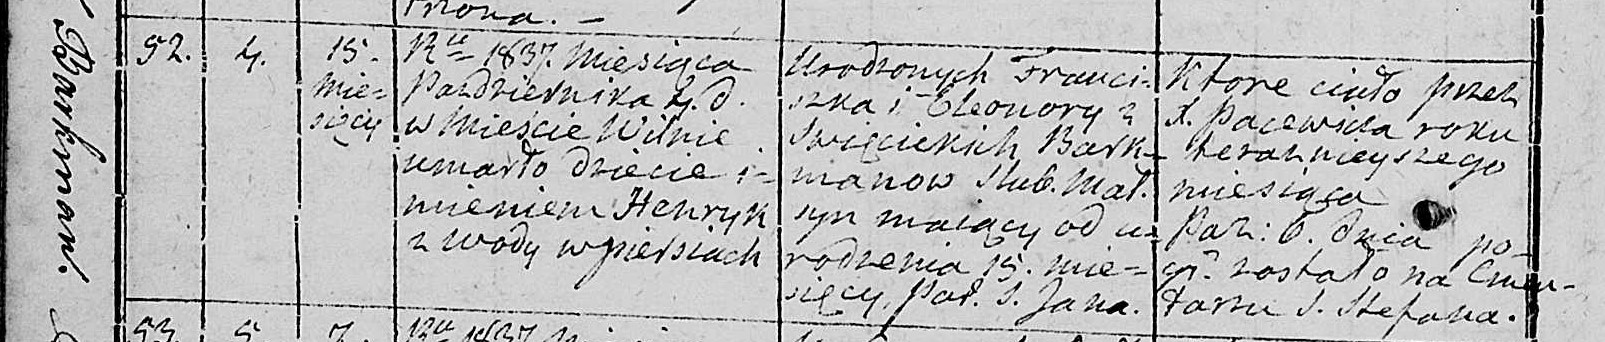 Barkman.
trzona. –
52.
4.
15.
mie-
sięcy
Rku 1837. miesiąca
Pazdziernika 4. d.
w Mieście Wilnie
umarło dziecie i-
mieniem Henryk
z wody w piersiach
Urodzonych Franci-
szka i Eleonory z
Swięcickich Bark-
manow Slub. Mał.
syn maiący od u-
rodzenia 15. mie-
sięcy, Par. S. Jana.
Ktore ciało przez
X. Pacewicza roku
teraznieyszego
miesiąca
Paz: 6. dnia po-
grz. zostało na Cmen-
tarzu S. Stefana.
53.
5.
7.
Rku 1837